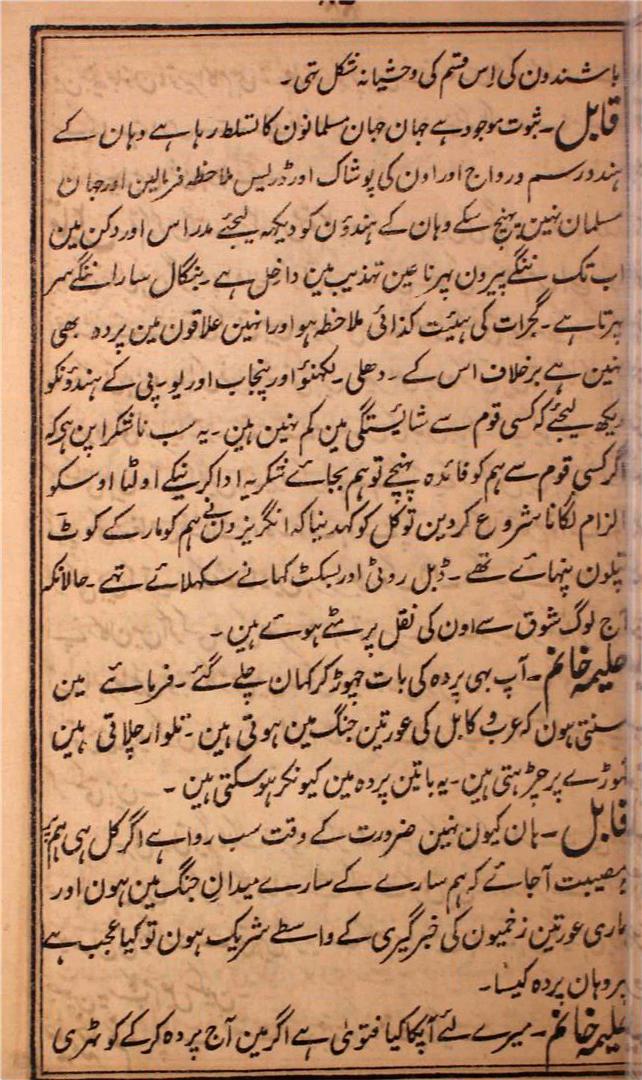 باشندون کی اِس قسم کی وحشیانہ شکل تہی۔
قابل۔ ثبوت موجود ہے جہان جہان مسلمانون کا تسلط رہا ہے وہان کے
ہندو رسم و رواج اور اون کی پوشاک اور ڈریس ملاحظہ فرمالین اور جہان
مسلمان نہین پہنچ سکے وہان کے ہندؤن کو دیکہہ لیجئے مدراس اور دکن مین
اب تک ننگے پیرون پہرنا عین تہذیب مین داخل ہے۔ بنگال سارا ننگے سر
پہرتا ہے۔ گجرات کی ہیئت کذائی ملاحظہ ہو اور انہین علاقون مین پردہ بھی
نہین ہے برخلاف اس کے۔ دھلی۔ لکھنؤ اور پنجاب اور یو۔پی کے ہندؤنکو
دیکھ لیجئے کہ کسی قوم سے شائیستگی مین کم نہین ہین۔ یہ سب ناشکراپن ہے کہ
اگر کسی قوم سے ہم کو فائدہ پہنچے تو ہم بجائے شکریہ ادا کرنیکے اولٹا اوسکو
الزام لگانا شروع کردین تو کل کو کہدینا کہ انگریزون نے ہم کو مار کے کوٹ
پتلون پنہائے تھے۔ ڈبل روٹی اور بسکٹ کہانے سکہلائے تہے۔ حالانکہ
آج لوگ شوق سے اون کی نقل پر مٹے ہوئے ہین۔
حلیمہ خانم۔ آپ بہی پردہ کی بات چہوڑ کر کہان چلے گئے۔ فرمائے مین
سنتی ہون کہ عرب و کابل کی عورتین جنگ مین ہوتی ہین۔ تلوار چلاتی ہین
گہوڑے پر چڑہتی ہین۔ یہ باتین پردہ مین کیونکر ہوسکتی ہین۔
قابل۔ ہان کیون نہین ضرورت کے وقت سب روا ہے اگر کل ہی ہم پر
مصیبت آجائے کہ ہم سارے کے سارے میدانِ جنگ مین ہون اور
ہماری عورتین زخمیون کی خبر گیری کے واسطے شریک ہون تو کیا عجب ہے
پر وہان پردہ کیسا۔
حلیمہ خانم۔ میرے لئے آپکا کیا فتویٰ ہے اگر مین آج پردہ کرکے کوٹہری